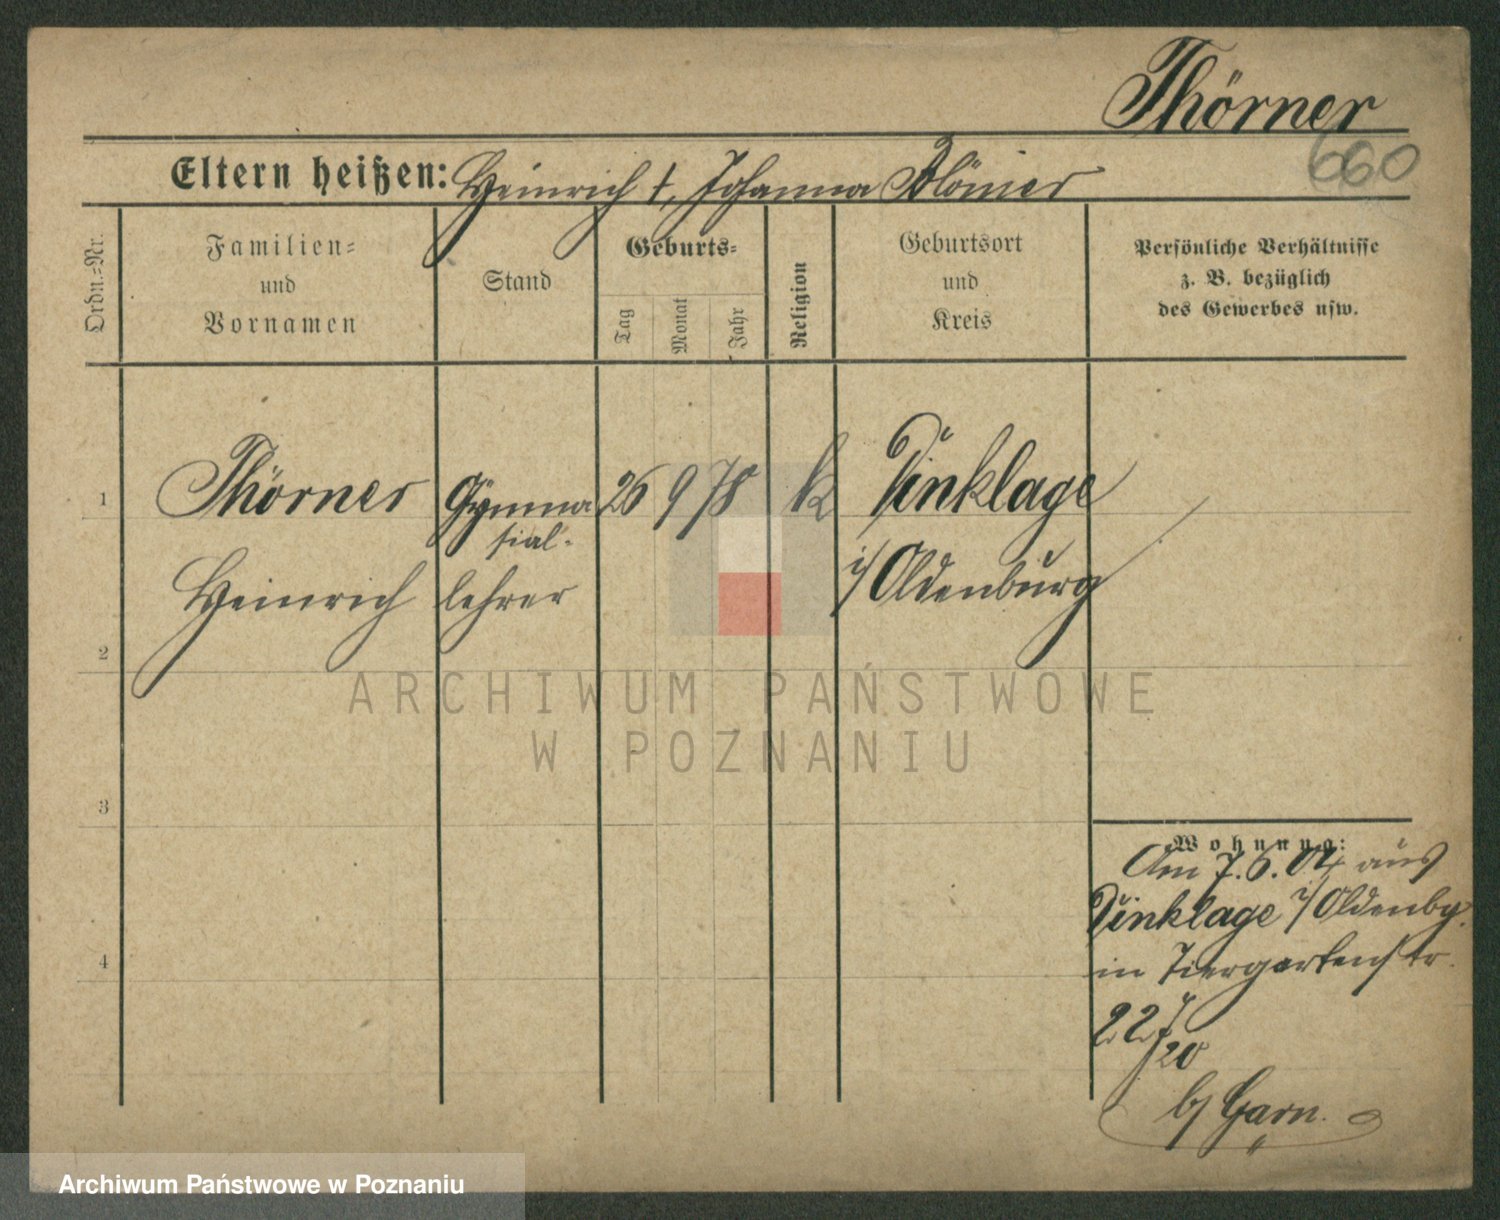 Thörner
660
Eltern heißen: Heinrich †, Johanna
Ordn.=Nr.
Familien=
und
Vornamen
Stand
Geburts=
Tag
Monat
Jahr
Religion
Geburtsort
und
Kreis
Persönliche Verhältnisse
z. B. bezüglich
des Gewerbes usw.
1
Thörner
Gymna
sial-
26 9 78
k
Dinklage
Heinrich
lehrer
i/Oldenburg
2
ARCHIWUM PAŃSTWOWE
W POZNANIU
3
Wohnung:
Am 7. 6. 04 aus
Dinklage i/Oldenbg.
4
in Tiergartenstr.
22
20
b/ Garn.
Archiwum Państwowe w Poznaniu